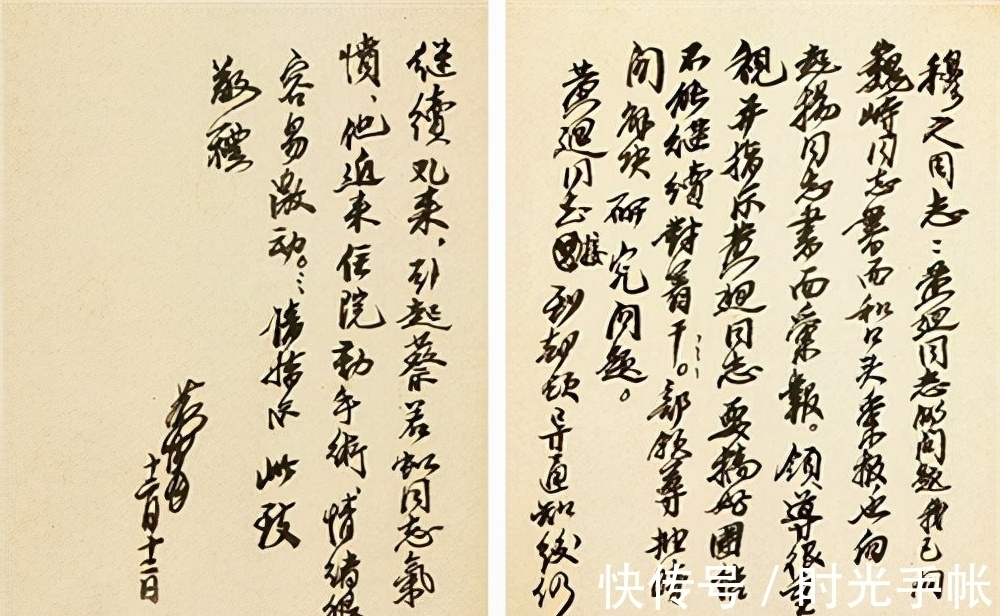 穆之同志：黄迴同志的问题我已向
巍峙同志书面和口头汇报也向
起扬同志书面汇报。领导很重
视并指示黄迴同志要搞好团结
不能继续对着干。部领导抽时
间解决研究问题。
黄迴同志接到部领导通知后仍
继续来，引起蔡若虹同志气
愤、他近来住院动手术、情绪很
容易激动。请指示 此致
敬礼
十二月十二日
快传号 / 时光手帐